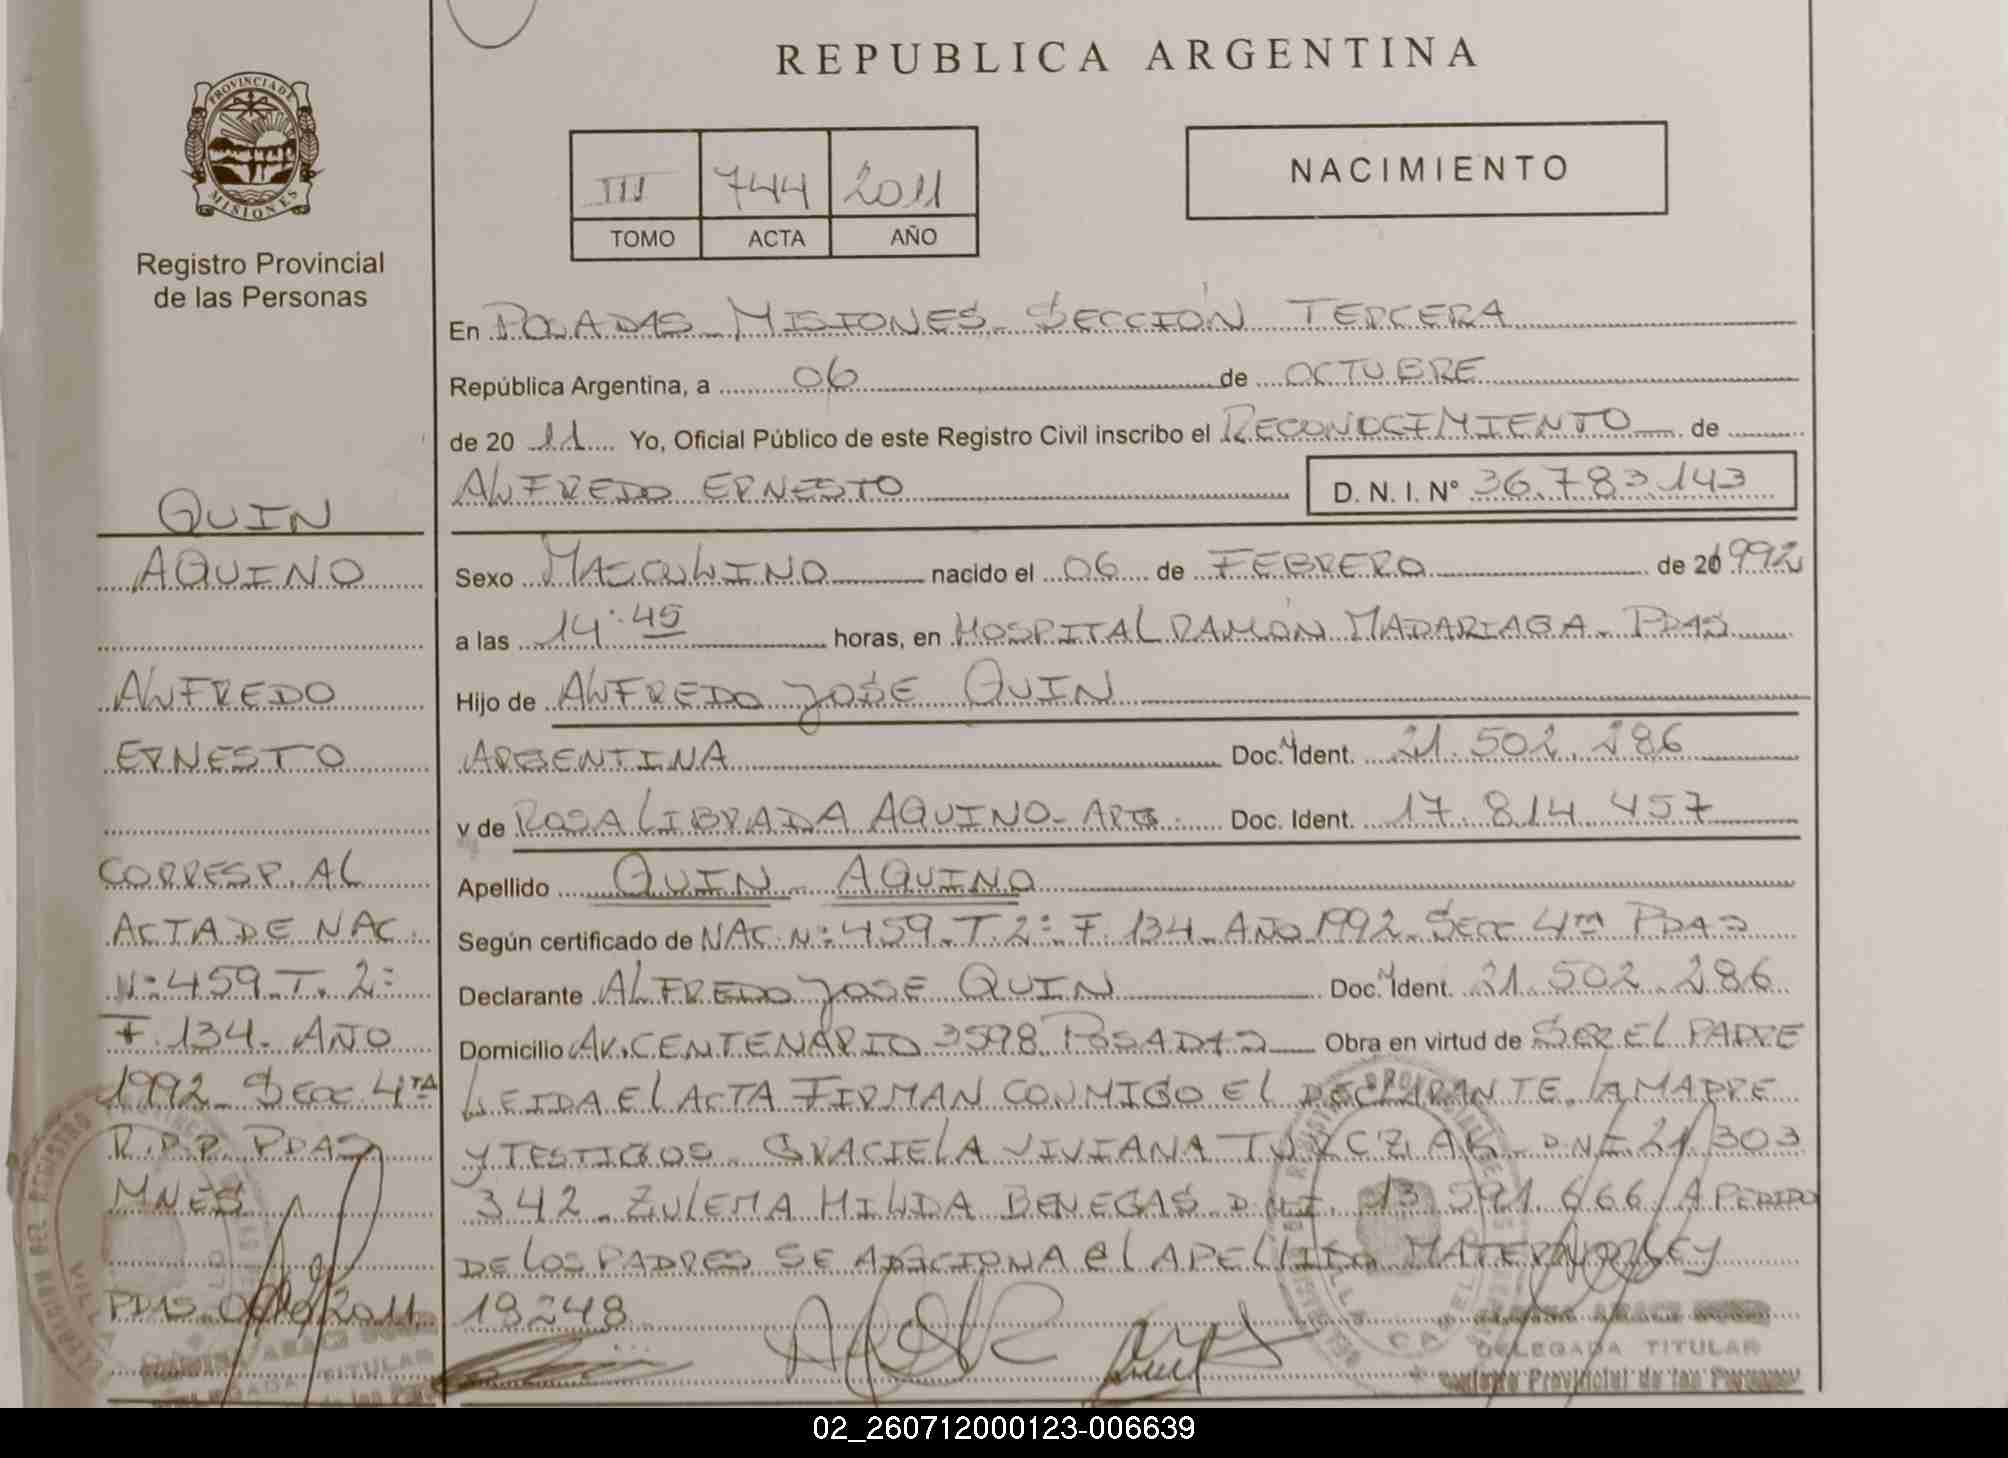 REPUBLICA ARGENTINA
PROVINCIA DE MISIONES
Registro Provincial
de las Personas
III 744 2011
TOMO ACTA AÑO
NACIMIENTO
En POSADAS - MISIONES - SECCIÓN TERCERA
República Argentina, a 06 de OCTUBRE
de 20 11 Yo, Oficial Público de este Registro Civil inscribo el RECONOCIMIENTO de
ALFREDO ERNESTO D. N. I. Nº 36.783.143
Sexo MASCULINO nacido el 06 de FEBRERO de 20 1992
a las 14:45 horas, en HOSPITAL RAMÓN MADARIAGA - PDAS
Hijo de ALFREDO JOSE QUIN
ARGENTINA Doc. Ident. 21.502.286
y de ROSA LIBRADA AQUINO - ARG. Doc. Ident. 17.814.457
Apellido QUIN - AQUINO
Según certificado de NAC. Nº 459 - T. 2º F. 134 - AÑO 1992 - SECC 4TA PDAS
Declarante ALFREDO JOSE QUIN Doc. Ident. 21.502.286
Domicilio AV. CENTENARIO 3598 POSADAS Obra en virtud de SER EL PADRE
LEIDA EL ACTA FIRMAN CONMIGO EL DECLARANTE, LA MADRE
Y TESTIGOS - GRACIELA VIVIANA TURCZAK - D.N.I. 21.303
342 - ZULEMA HILDA BENEGAS D.N.I. 13.591.666. A PEDIDO
DE LOS PADRES SE ADICIONA el APELLIDO MATERNO LEY
18248
DELEGADA TITULAR
Registro Provincial de las Personas
QUIN
AQUINO
ALFREDO
ERNESTO
CORRESP. AL
ACTA DE NAC.
Nº 459 - T. 2º
F. 134 - AÑO
1992 - SECC 4TA
R.P.P. PDAS
MNES
PDAS 06/10/2011
DELEGADA TITULAR
02_260712000123-006639